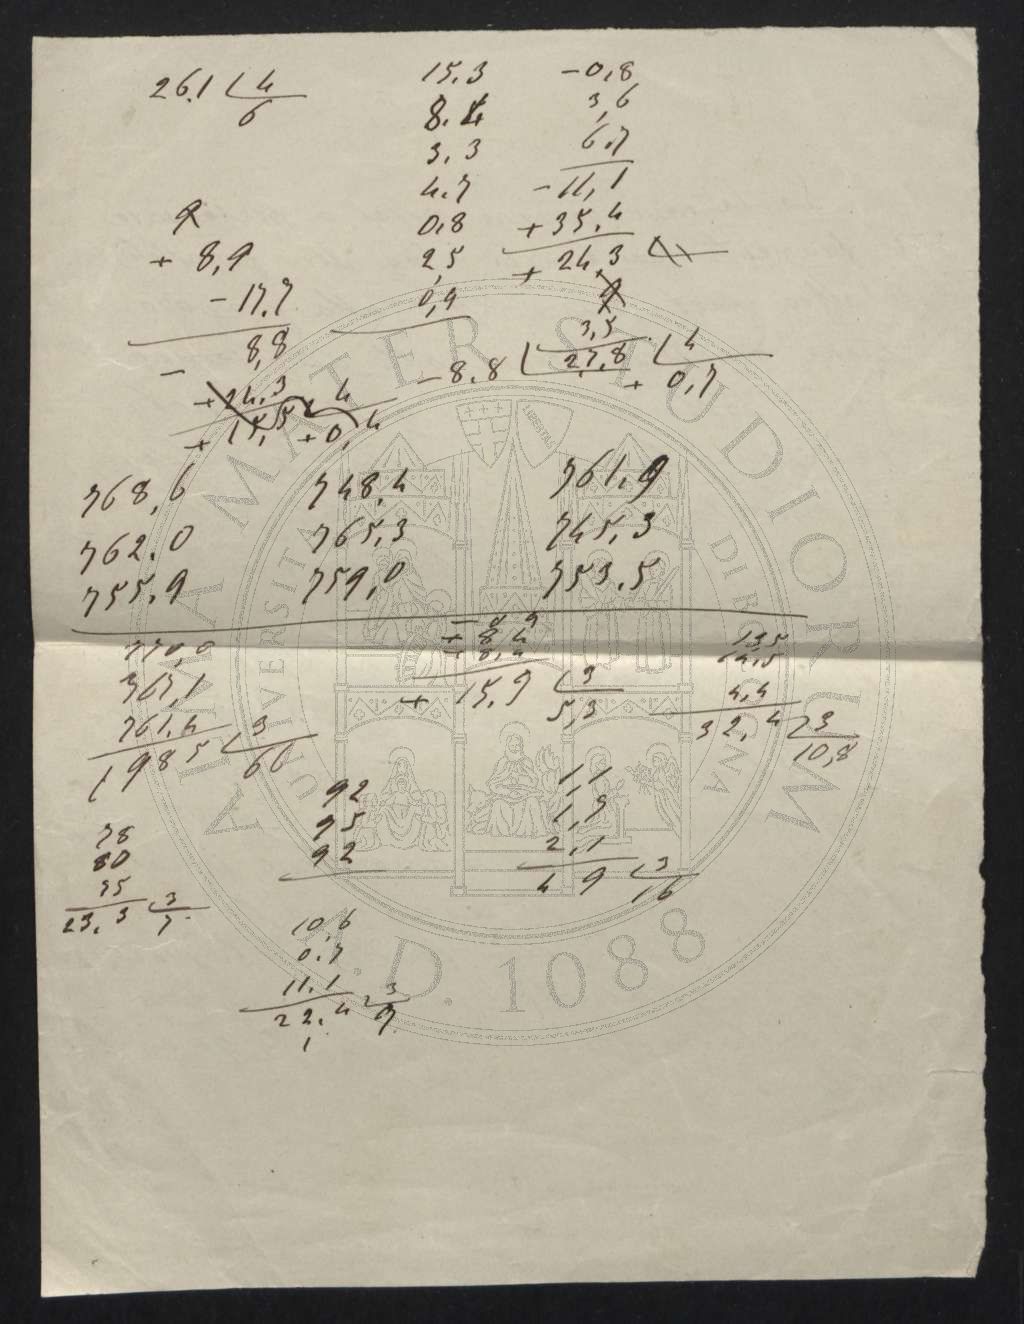 26.1 4
6
15.3
8.4
3.3
4.7
0.8
2,5
0,9
-0,8
3,6
6.7
-11,1
+35.4
+24,3
3,5
27,8 4
+0,7
9
+8,9
-17.7
-8,8
+24.3 4
+15,5 +0,4
-8.8
768,6 748,4 761,9
762.0 765,3 745,3
755,9 759,0 753.5
767,1
761.4
1985 3
66
+8,4
+15,9 3
5,3
13,5
14,5
4,4
32,4 3
10,8
78
80
75
23,3 3
7
92
95
92
1,1
1,7
2,1
4 9 3
16
10,6
0,7
11,1
22,4 3
7
1
ALMA MATER STUDIORUM
UNIVERSITÀ DI BOLOGNA
LIBERTAS
A.D. 1088